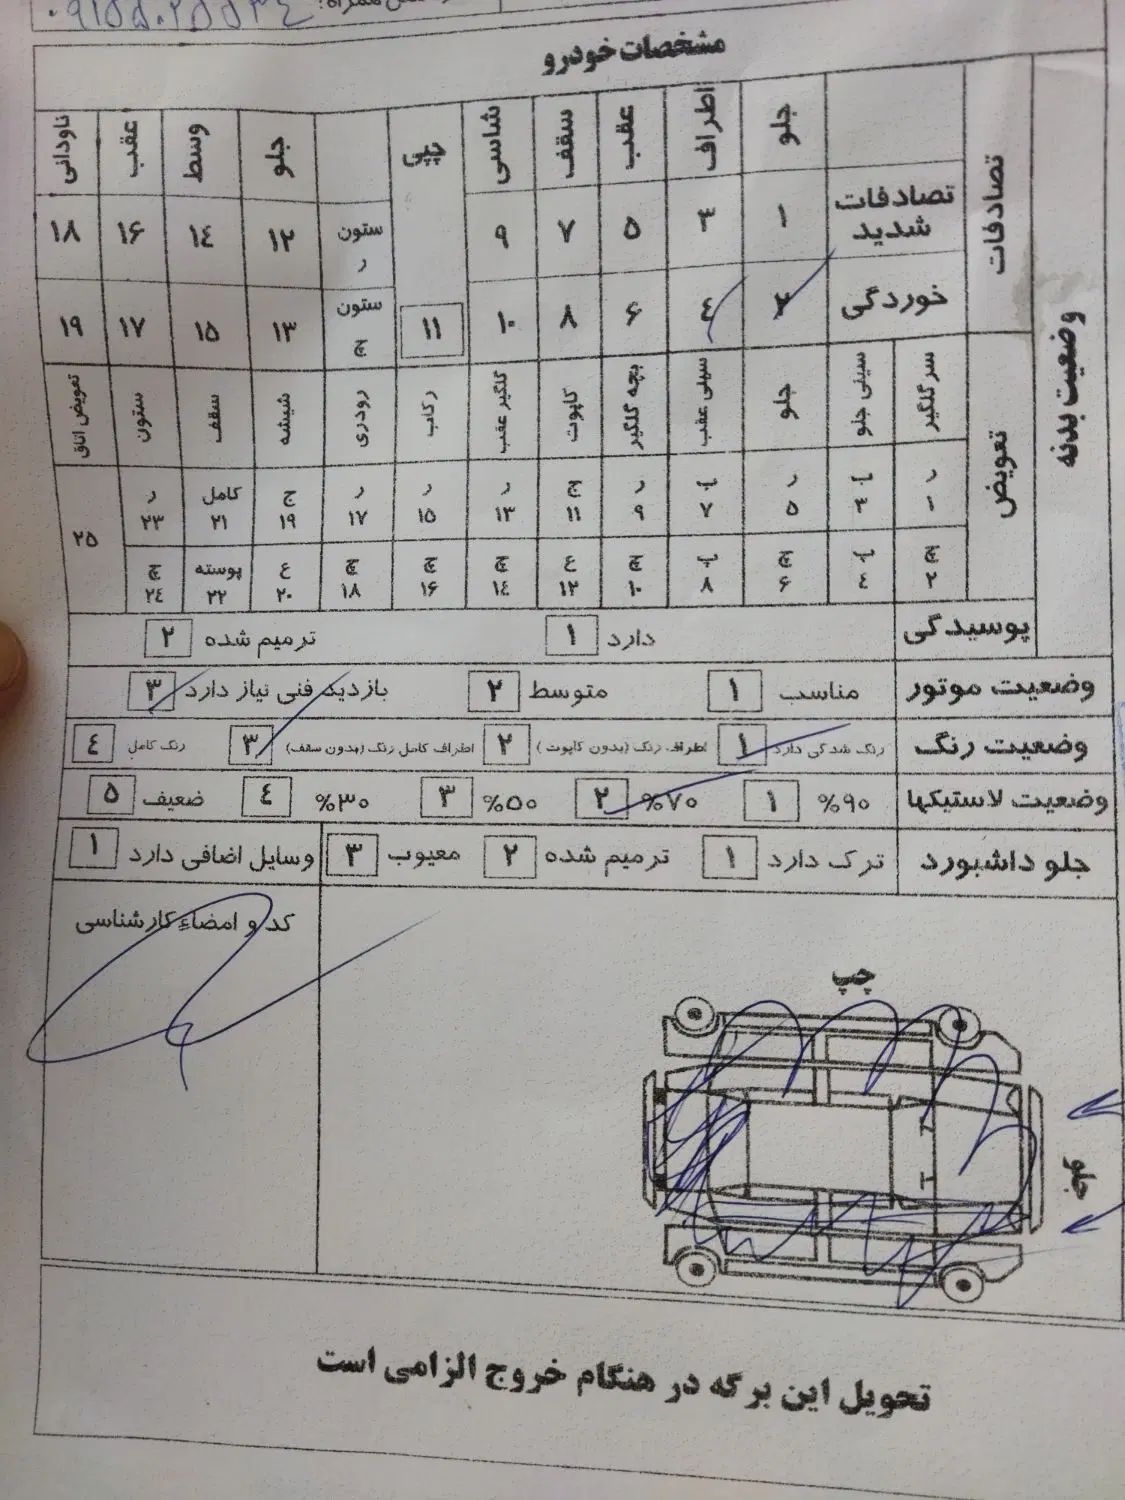 مشخصات خودرو
وضعیت بدنه
تصادفات
جلو اطراف عقب سقف شاسی پلی جلو وسط عقب ناودانی
تصادفات شدید ۱ ۳ ۵ ۷ ۹ ستون ر ۱۲ ۱۴ ۱۶ ۱۸
خوردگی ۲ ۴ ۶ ۸ ۱۰ ۱۱ ستون چ ۱۳ ۱۵ ۱۷ ۱۹
تعویض
سرگلگیر سینی جلو جلو سینی عقب بچه گلگیر کاپوت گلگیر عقب رکاب رودری شیشه سقف ستون تعویض اتاق
ر ر ر ر ر ج کامل ر
۱ ۳ ۵ ۷ ۹ ۱۱ ۱۳ ۱۵ ۱۷ ۱۹ ۲۱ ۲۳ ۲۵
چ چ چ ع چ چ چ ع پوسته چ
۲ ۴ ۶ ۸ ۱۰ ۱۲ ۱۴ ۱۶ ۱۸ ۲۰ ۲۲ ۲۴
پوسیدگی دارد ۱ ترمیم شده ۲
وضعیت موتور مناسب ۱ متوسط ۲ بازدید فنی نیاز دارد ۳
وضعیت رنگ رنگ شدگی دارد ۱ اطراف رنگ (بدون کاپوت) ۲ اطراف کامل رنگ (بدون سقف) ۳ رنگ کامل ۴
وضعیت لاستیکها %۹۰ ۱ %۷۰ ۲ %۵۰ ۳ %۳۰ ۴ ضعیف ۵
جلو داشبورد ترک دارد ۱ ترمیم شده ۲ معیوب ۳ وسایل اضافی دارد ۱
کد و امضاء کارشناسی
چپ
جلو
تحویل این برگه در هنگام خروج الزامی است